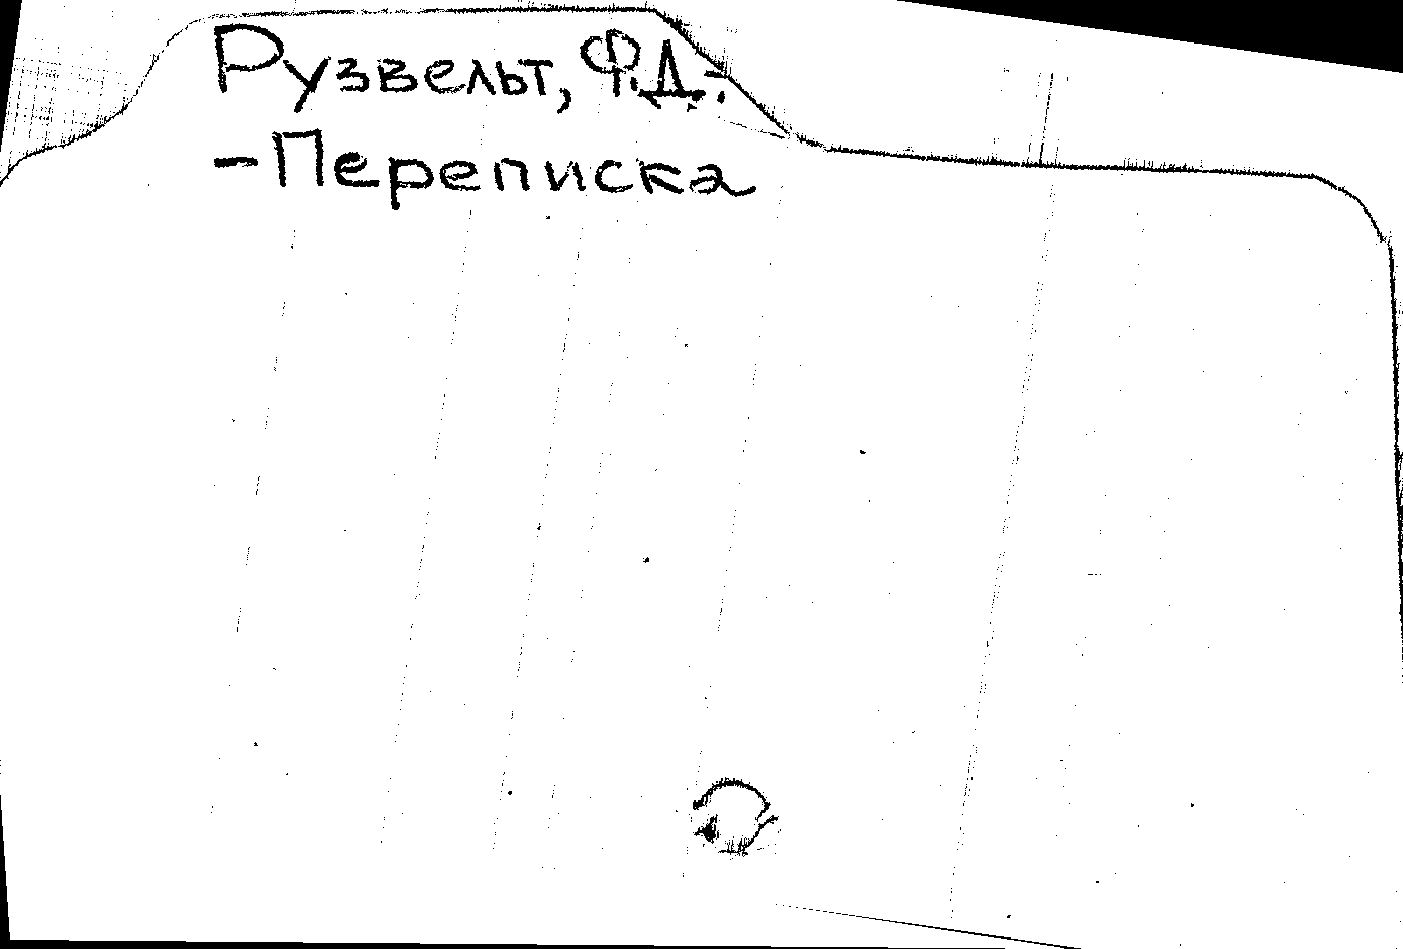 Рузвельт, Ф.Д.
-Переписка